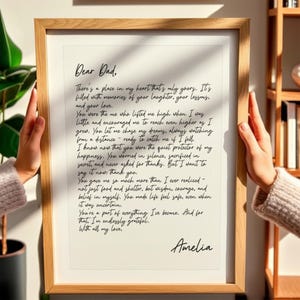 Dear Dad,
There's a place in my heart that's only yours. It's
filled with memories of your laughter, your lessons,
and your love.
You were the one who lifted me high when I was
little and encouraged me to reach even higher as I
grew. You let me chase my dreams, always watching
from a distance - ready to catch me if I fell.
I know now that you were the quiet protector of my
happiness. You worried in silence, sacrificed in
secret, and never asked for thanks. But I want to
say it now: thank you.
You gave me so much more than I ever realized -
not just food and shelter, but wisdom, courage, and
belief in myself. You made life feel safe, even when
it was uncertain.
You're a part of everything I've become. And for
that, I'm endlessly grateful.
With all my love,
Amelia